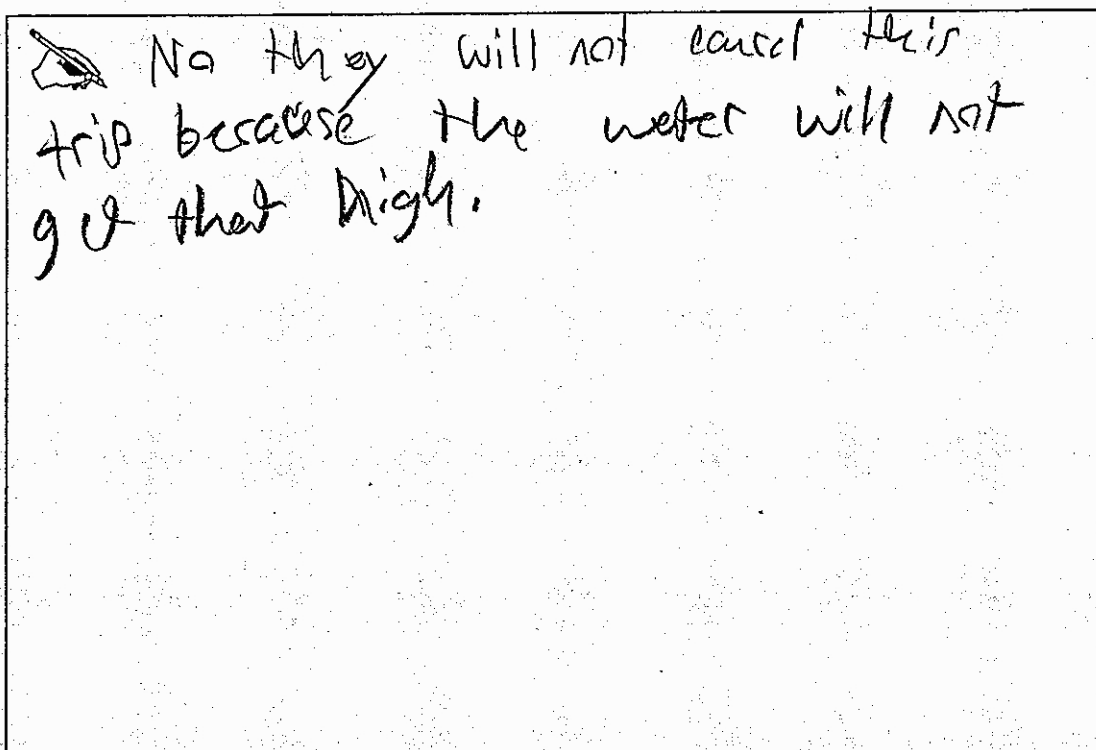 No they will not cancel this
trip because the water will not
get that high.